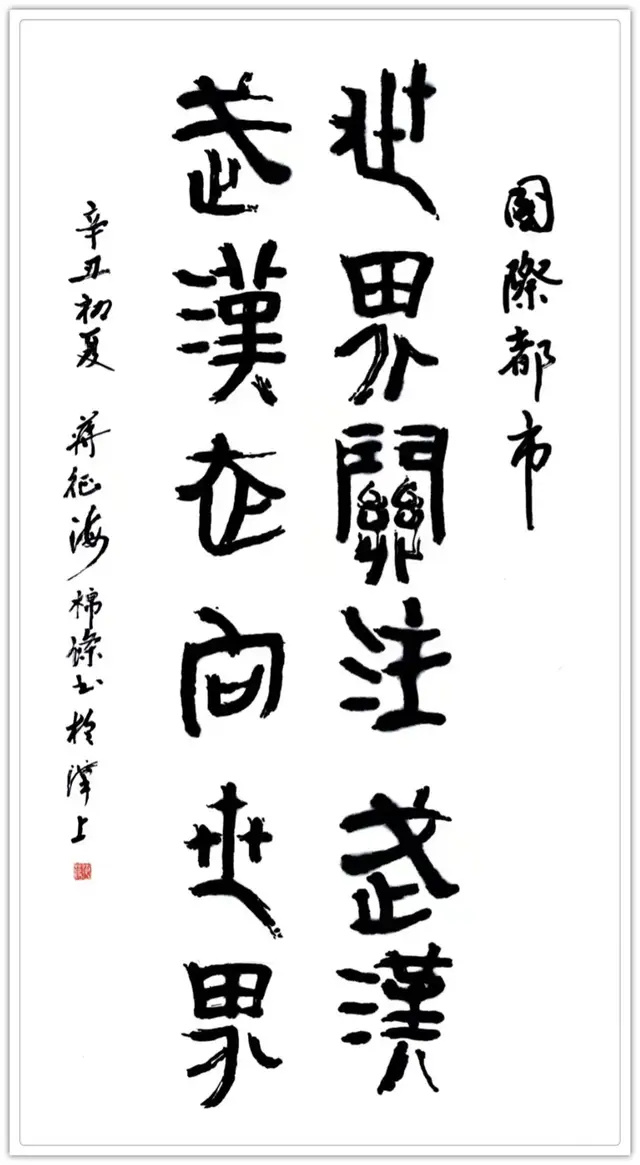 國際都市
世界關注武漢
武漢走向世界
辛丑初夏 蔣征海棉條书於漢上